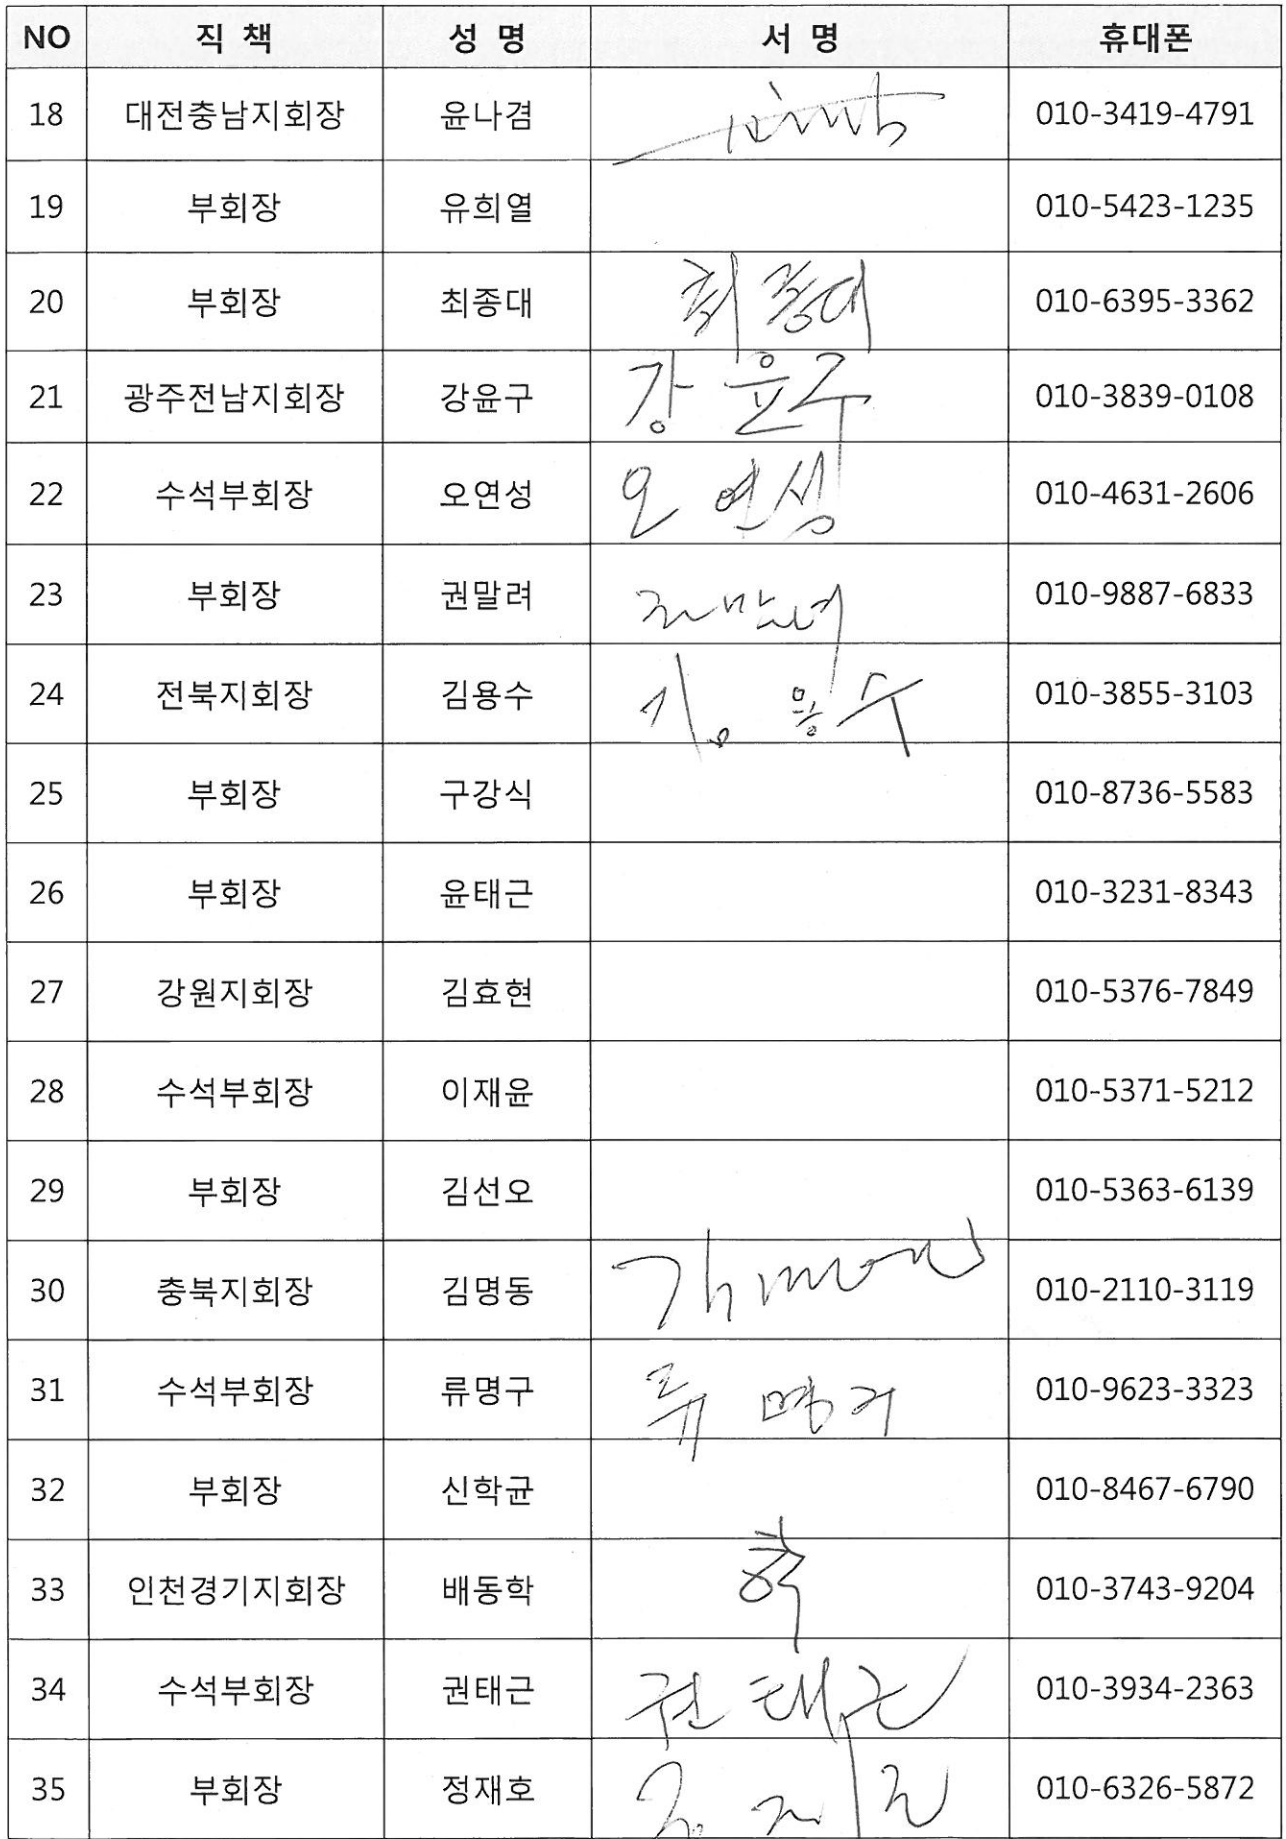 NO 직 책 성 명 서 명 휴대폰
18 대전충남지회장 윤나겸 010-3419-4791
19 부회장 유희열 010-5423-1235
20 부회장 최종대 최종대 010-6395-3362
21 광주전남지회장 강윤구 강윤구 010-3839-0108
22 수석부회장 오연성 오연성 010-4631-2606
23 부회장 권말려 010-9887-6833
24 전북지회장 김용수 김용수 010-3855-3103
25 부회장 구강식 010-8736-5583
26 부회장 윤태근 010-3231-8343
27 강원지회장 김효현 010-5376-7849
28 수석부회장 이재윤 010-5371-5212
29 부회장 김선오 010-5363-6139
30 충북지회장 김명동 010-2110-3119
31 수석부회장 류명구 류명구 010-9623-3323
32 부회장 신학균 010-8467-6790
33 인천경기지회장 배동학 학 010-3743-9204
34 수석부회장 권태근 권태근 010-3934-2363
35 부회장 정재호 010-6326-5872